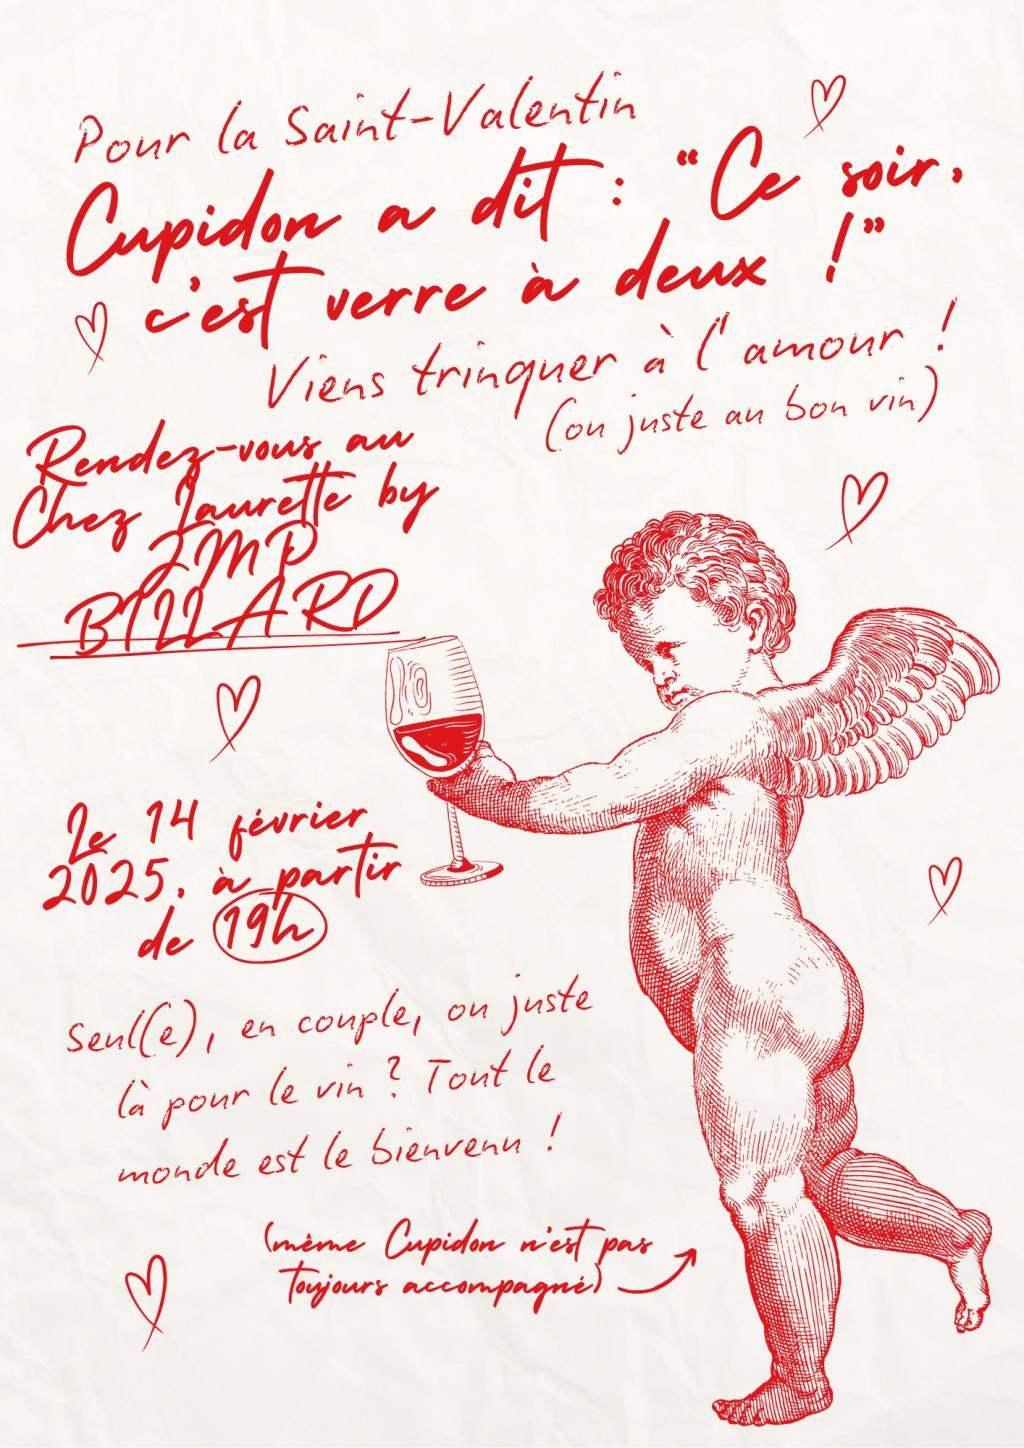 Pour la Saint-Valentin
Cupidon a dit : “Ce soir,
c'est verre à deux !”
Viens trinquer à l'amour !
(ou juste au bon vin)
Rendez-vous au
Chez Laurette by
JMP
BILLARD
Le 14 février
2025, à partir
de 19h
Seul(e), en couple, ou juste
là pour le vin ? Tout le
monde est le bienvenu !
(même Cupidon n'est pas
toujours accompagné)